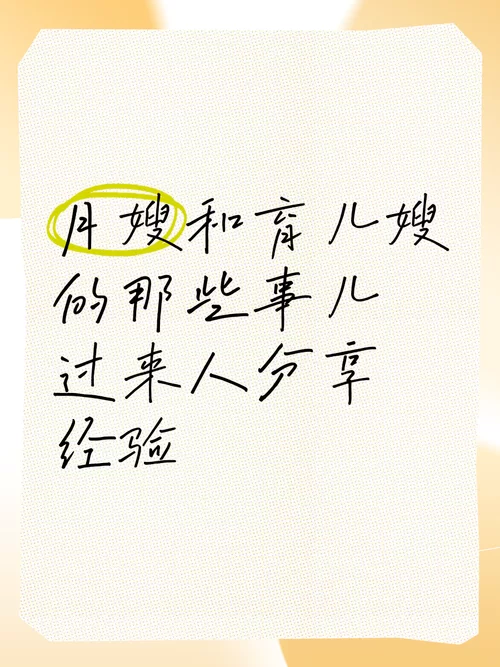 月嫂和育儿嫂
的那些事儿
过来人分享
经验